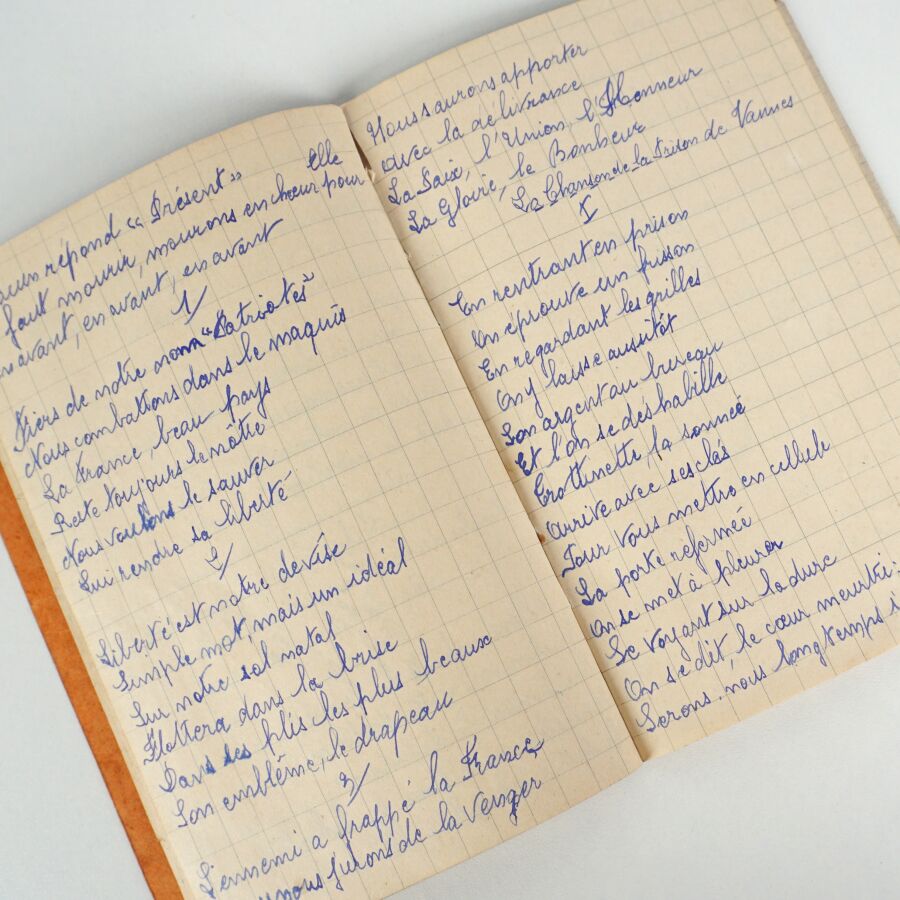 répond "Présent" Elle
faut mourir, mourons en chœur pour
avant, en avant, en avant
1/
Fiers de notre nom "Patriotes"
Nous combattons dans le maquis
La France, beau pays
Reste toujours le nôtre
Nous voulons le sauver
Lui rendre sa liberté
2/
Liberté est notre devise
Simple mot, mais un idéal
Sur notre sol natal
Flottera dans la brise
Dans ses plis les plus beaux
Son emblême, le drapeau
3/
L'ennemi a frappé la France,
nous jurons de la venger
Nous saurons apporter
avec la délivrance
La Paix, l'Union, l'Honneur
La Gloire, le Bonheur
La Chanson de la Prison de Vannes
I
En rentrant en prison
On éprouve un frisson
En regardant les grilles
On y laisse aussitôt
Son argent au bureau
Et l'on se déshabille
Trottinette, la sonneé
Arrive avec ses clés
Pour vous mettre en cellule
La porte refermeé
On se met à pleurer
Se voyant sur la dure
On se dit, le cœur meurtri:
Serons-nous longtemps